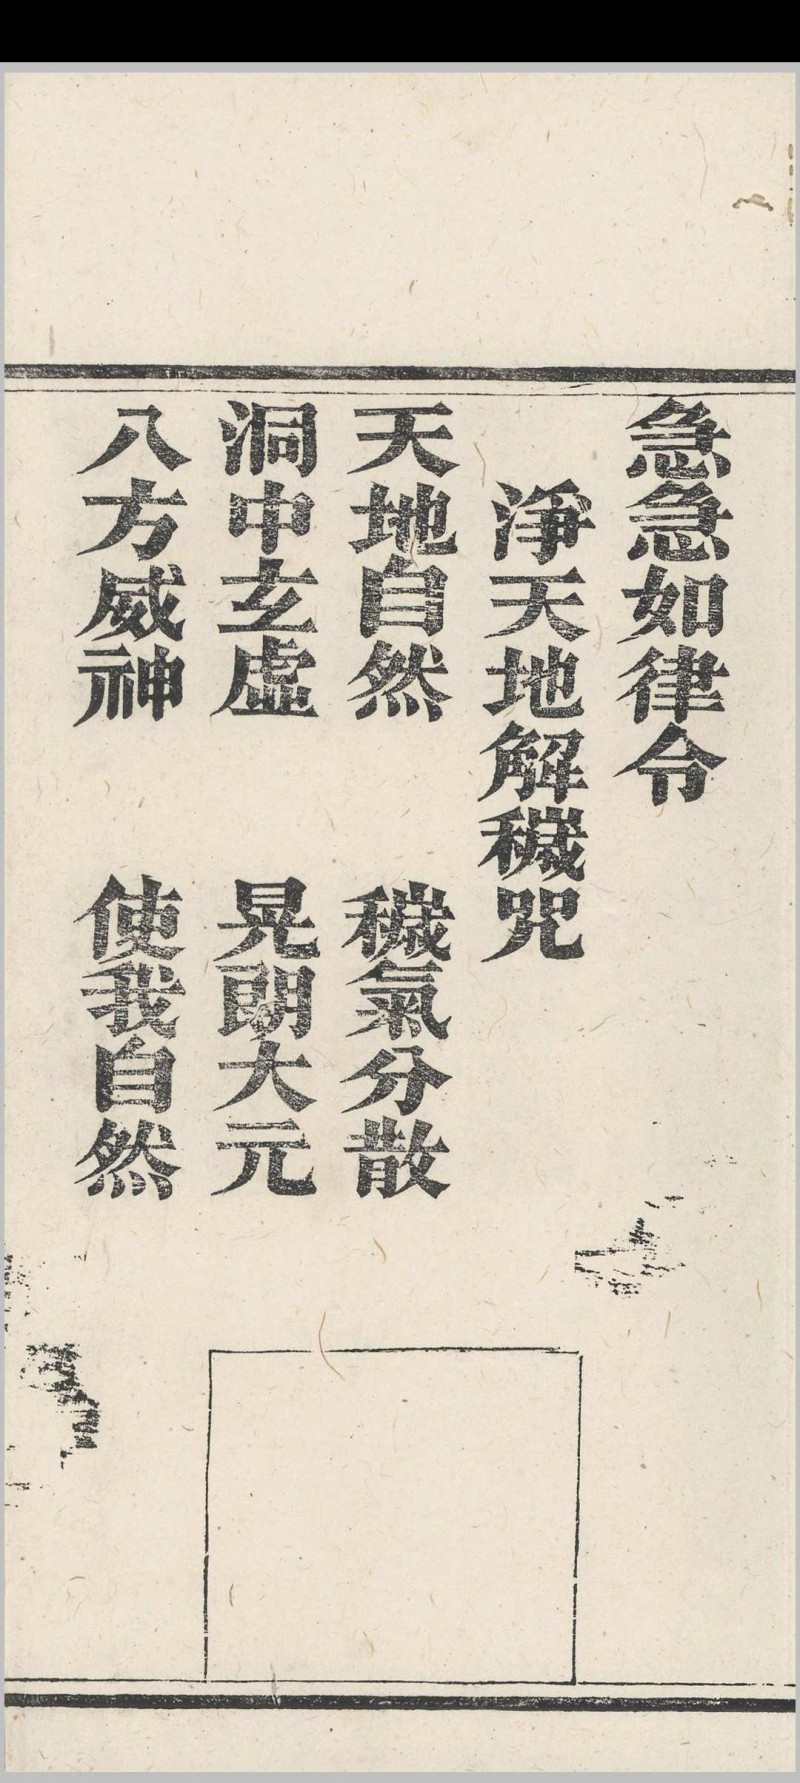 急急如律令
淨天地解穢咒
天地自然　穢氣分散
洞中玄虛　晃朗大元
八方威神　使我自然